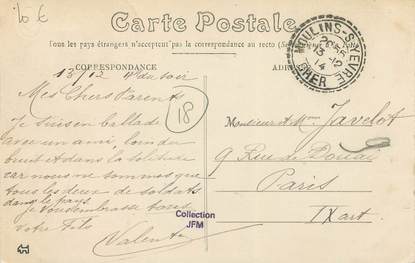 15 €
Carte Postale
Tous les pays étrangers n'acceptent pas la correspondance au recto (Se
CORRESPONDANCE
MOULINS-S-YEVRE
13 -12
14
CHER
13/12 4h du soir
Mes Chers Parents
18
Je suis en ballade
avec un ami, loin du
bruit et dans la solitude
car nous ne sommes que
tous les deux de soldats
dans le pays.
Je vous embrasse tous
votre fils
Valent
Monsieur et Mme Javelot
9 Rue de Douai
Paris
IX art.
Collection
JFM